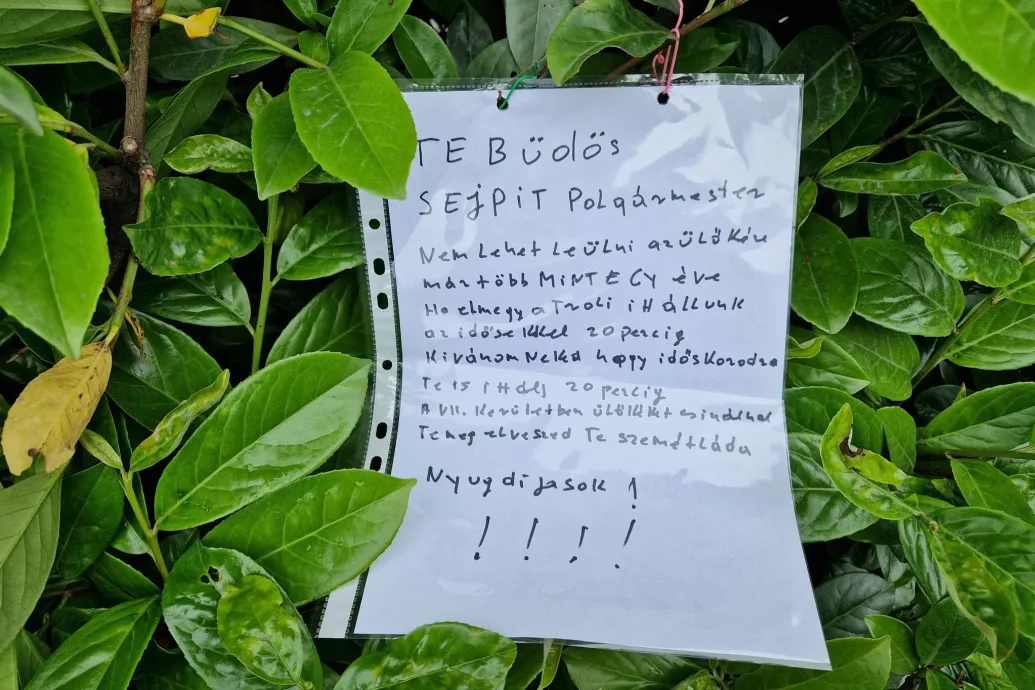 TE BÜdös
SEJPiT Polgármester
Nem lehet leülni az ülőkére
már több MiNT EGY éve
Ha elmegy a Troli itt állunk
az idősekkel 20 percig
Kívánom Neked hogy időskorodra
Te is itt állj 20 percig
A VII. Kerületben ülőkéket csinálnak
Te meg elveszed Te szemétláda
Nyugdíjasok !
! ! ! !